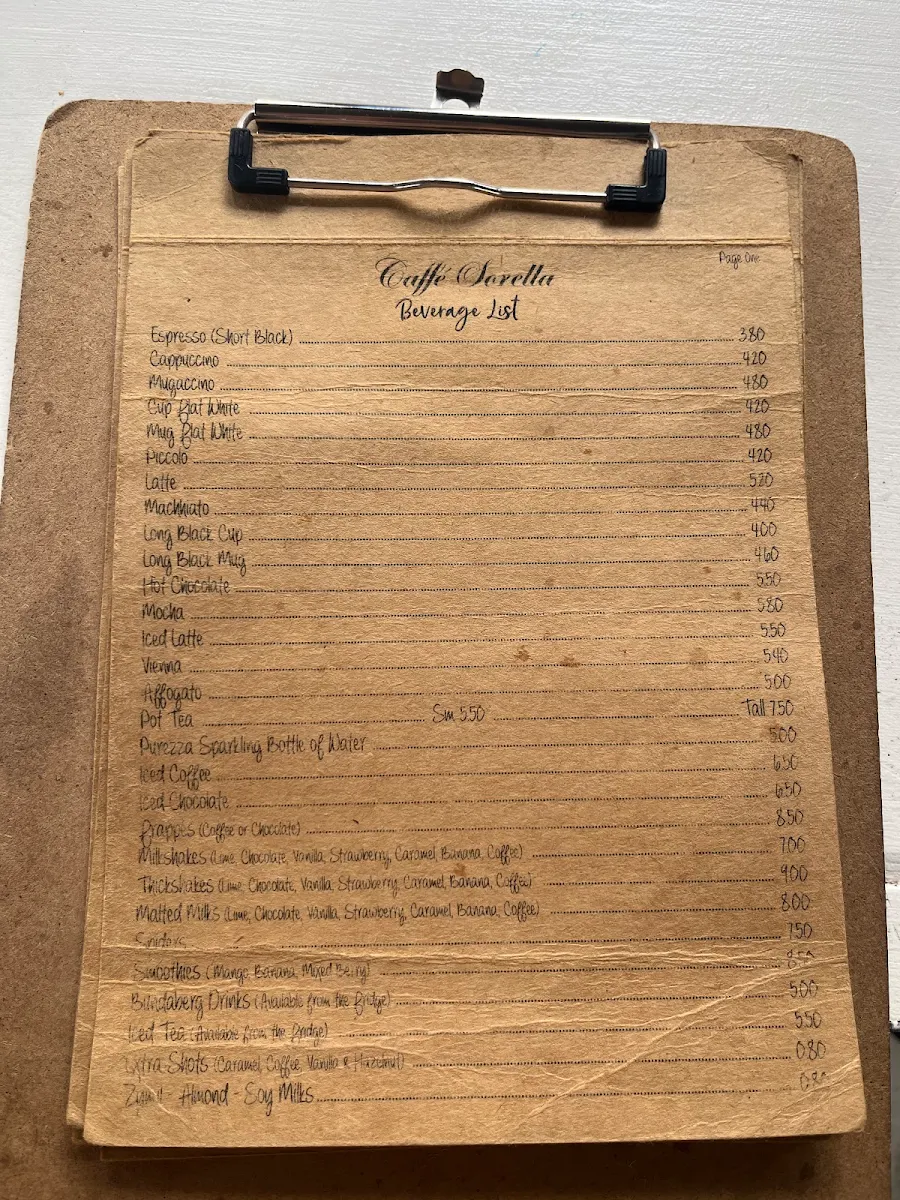 Page One
Caffé Sorella
Beverage List
Espresso (Short Black) 3.80
Cappuccino 4.20
Mugaccino 4.80
Cup Flat White 4.20
Mug Flat White 4.80
Piccolo 4.20
Latte 5.20
Machhiato 4.40
Long Black Cup 4.00
Long Black Mug 4.60
Hot Chocolate 5.50
Mocha 5.80
Iced Latte 5.50
Vienna 5.40
Affogato 5.00
Pot Tea Sm 5.50 Tall 7.50
Purezza Sparkling Bottle of Water 5.00
Iced Coffee 6.50
Iced Chocolate 6.50
Frappes (Coffee or Chocolate) 8.50
Milkshakes (Lime, Chocolate, Vanilla, Strawberry, Caramel, Banana, Coffee) 7.00
Thickshakes (Lime, Chocolate, Vanilla, Strawberry, Caramel, Banana, Coffee) 9.00
Malted Milks (Lime, Chocolate, Vanilla, Strawberry, Caramel, Banana, Coffee) 8.00
Spiders 7.50
Smoothies (Mango, Banana, Mixed Berry)
Bundaberg Drinks (Available from the Fridge) 5.00
Iced Tea (Available from the Fridge) 5.50
Extra Shots (Caramel, Coffee, Vanilla & Hazelnut) 0.80
- Almond - Soy Milks 0.80